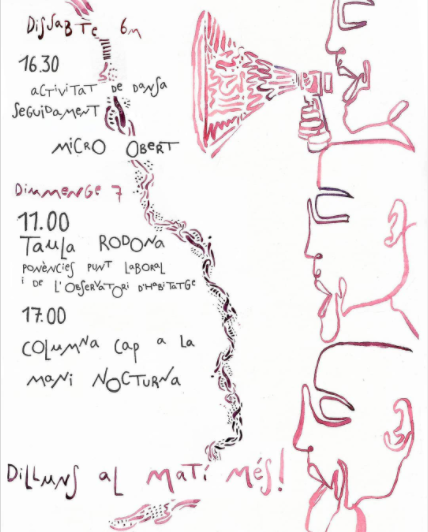 Dissabte 6m
16.30
activitat de dansa
seguidament
micro obert
Dimmenge 7
11.00
Taula rodona
ponències punt laboral
i de l'Observatori d'habitatge
17.00
columna cap a la
mani nocturna
Dilluns al matí més!